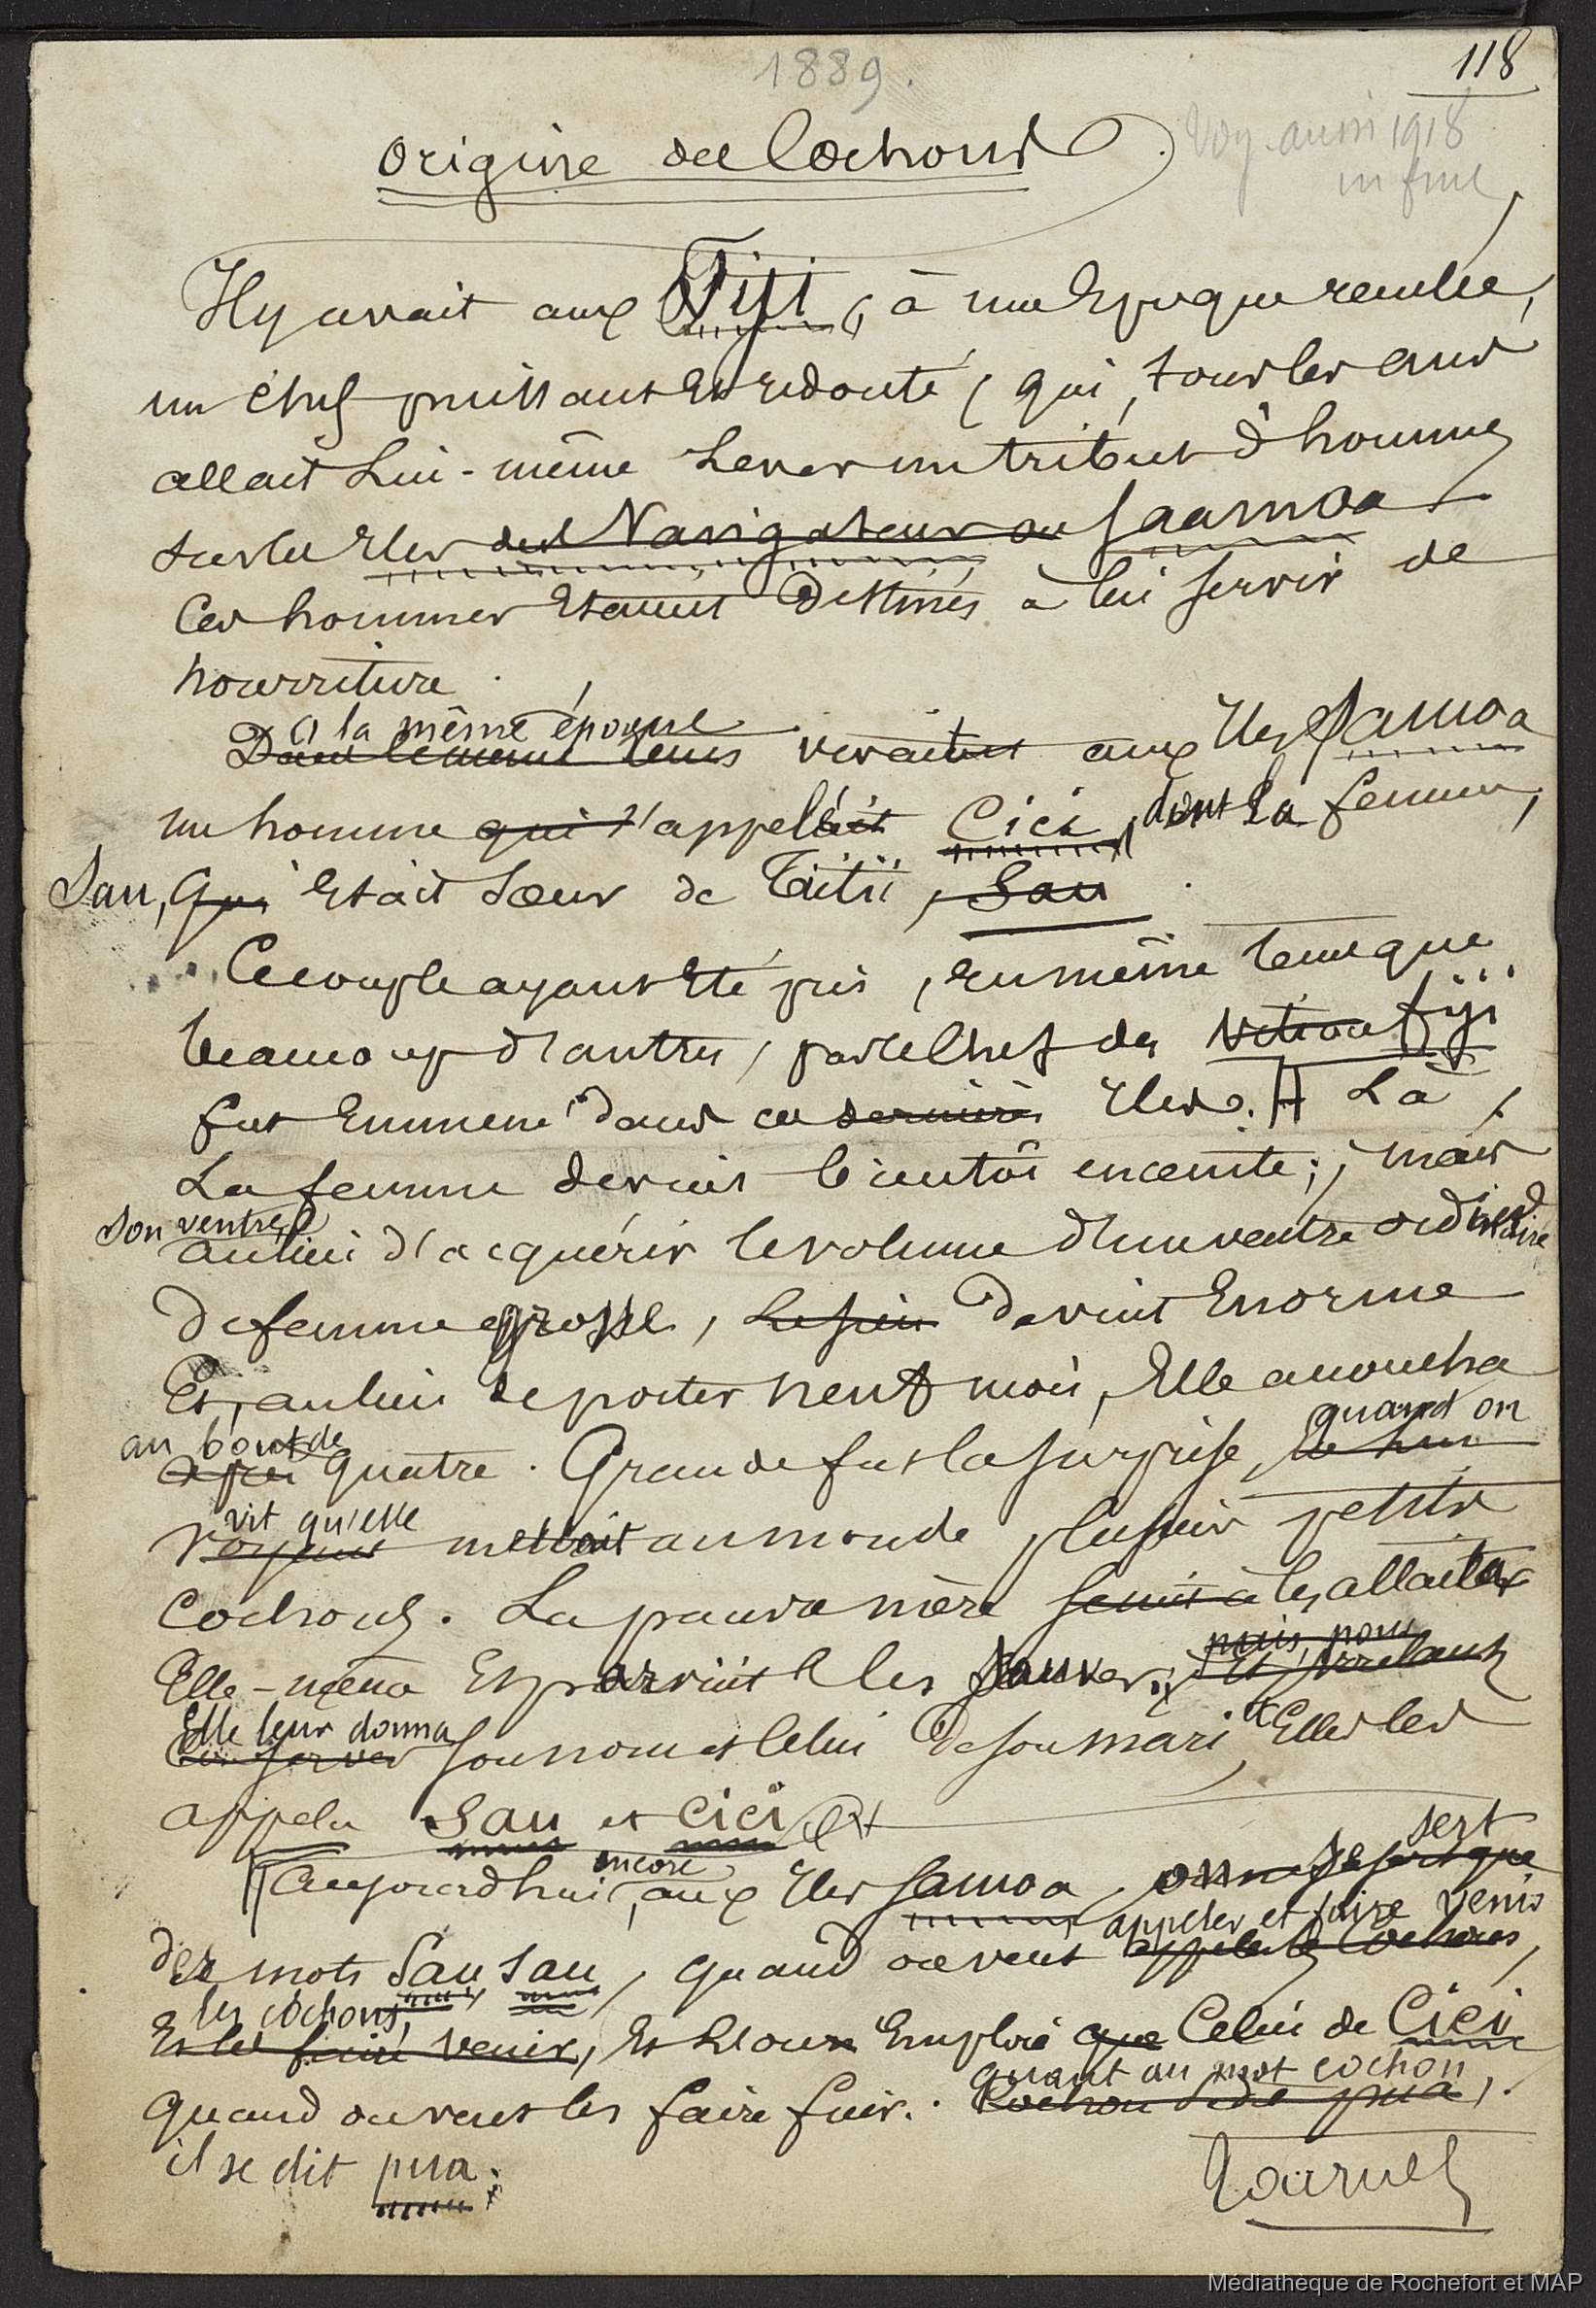 1889.
118
Origine des Cochons
Voy. aussi 1918
in fine
Il y avait aux Fiji, à une Epoque reculée,
un Chef puissant Et redouté, qui, tous les ans
allait Lui-même Lever un tribut d'hommes
sur les Iles des Navigateurs ou Saamoa
Ces hommes Etaient Destinés à lui servir de
nourriture.
à la même époque
Dans le meme tems vivait aux Iles Samoa
un homme qui s'appelait Cici, dont la femme,
Sau, qui Etait Sœur de Taïtii, Sau
Ce couple ayant Eté pris, En même tems que
beaucoup d'autres, par le Chef des Fiji
fut Emmené dans ces dernières Iles. Là,
La femme devint bientôt enceinte; mais
son ventre,
au lieu d'acquérir le volume d'un ventre ordinaire
De femme grosse, le sien Devint Enorme
Et, au lieu de porter neuf mois, Elle accoucha
au bout de
après quatre. Grande fut la surprise, quand on
vit qu'elle
voyant mettait au monde plusieurs petits
Cochons. La pauvre mère se mit à les allaiter
Elle-même Et parvint à les sauver; puis, pour
Elle leur donna
Conserver son nom et Celui De son mari, Elle les
appela Sau et Cici
Aujourd'hui encore, aux Iles Samoa, on se sert
appeler et faire venir
des mots Sau Sau, quand on veut appeler les Cochons,
les cochons,
Et les faire venir, Et L'on Emploie que Celui de Cici
quant au mot cochon
quand on veut les faire fuir. Cochon se dit pua,
il se dit pua.
Médiathèque de Rochefort et MAP